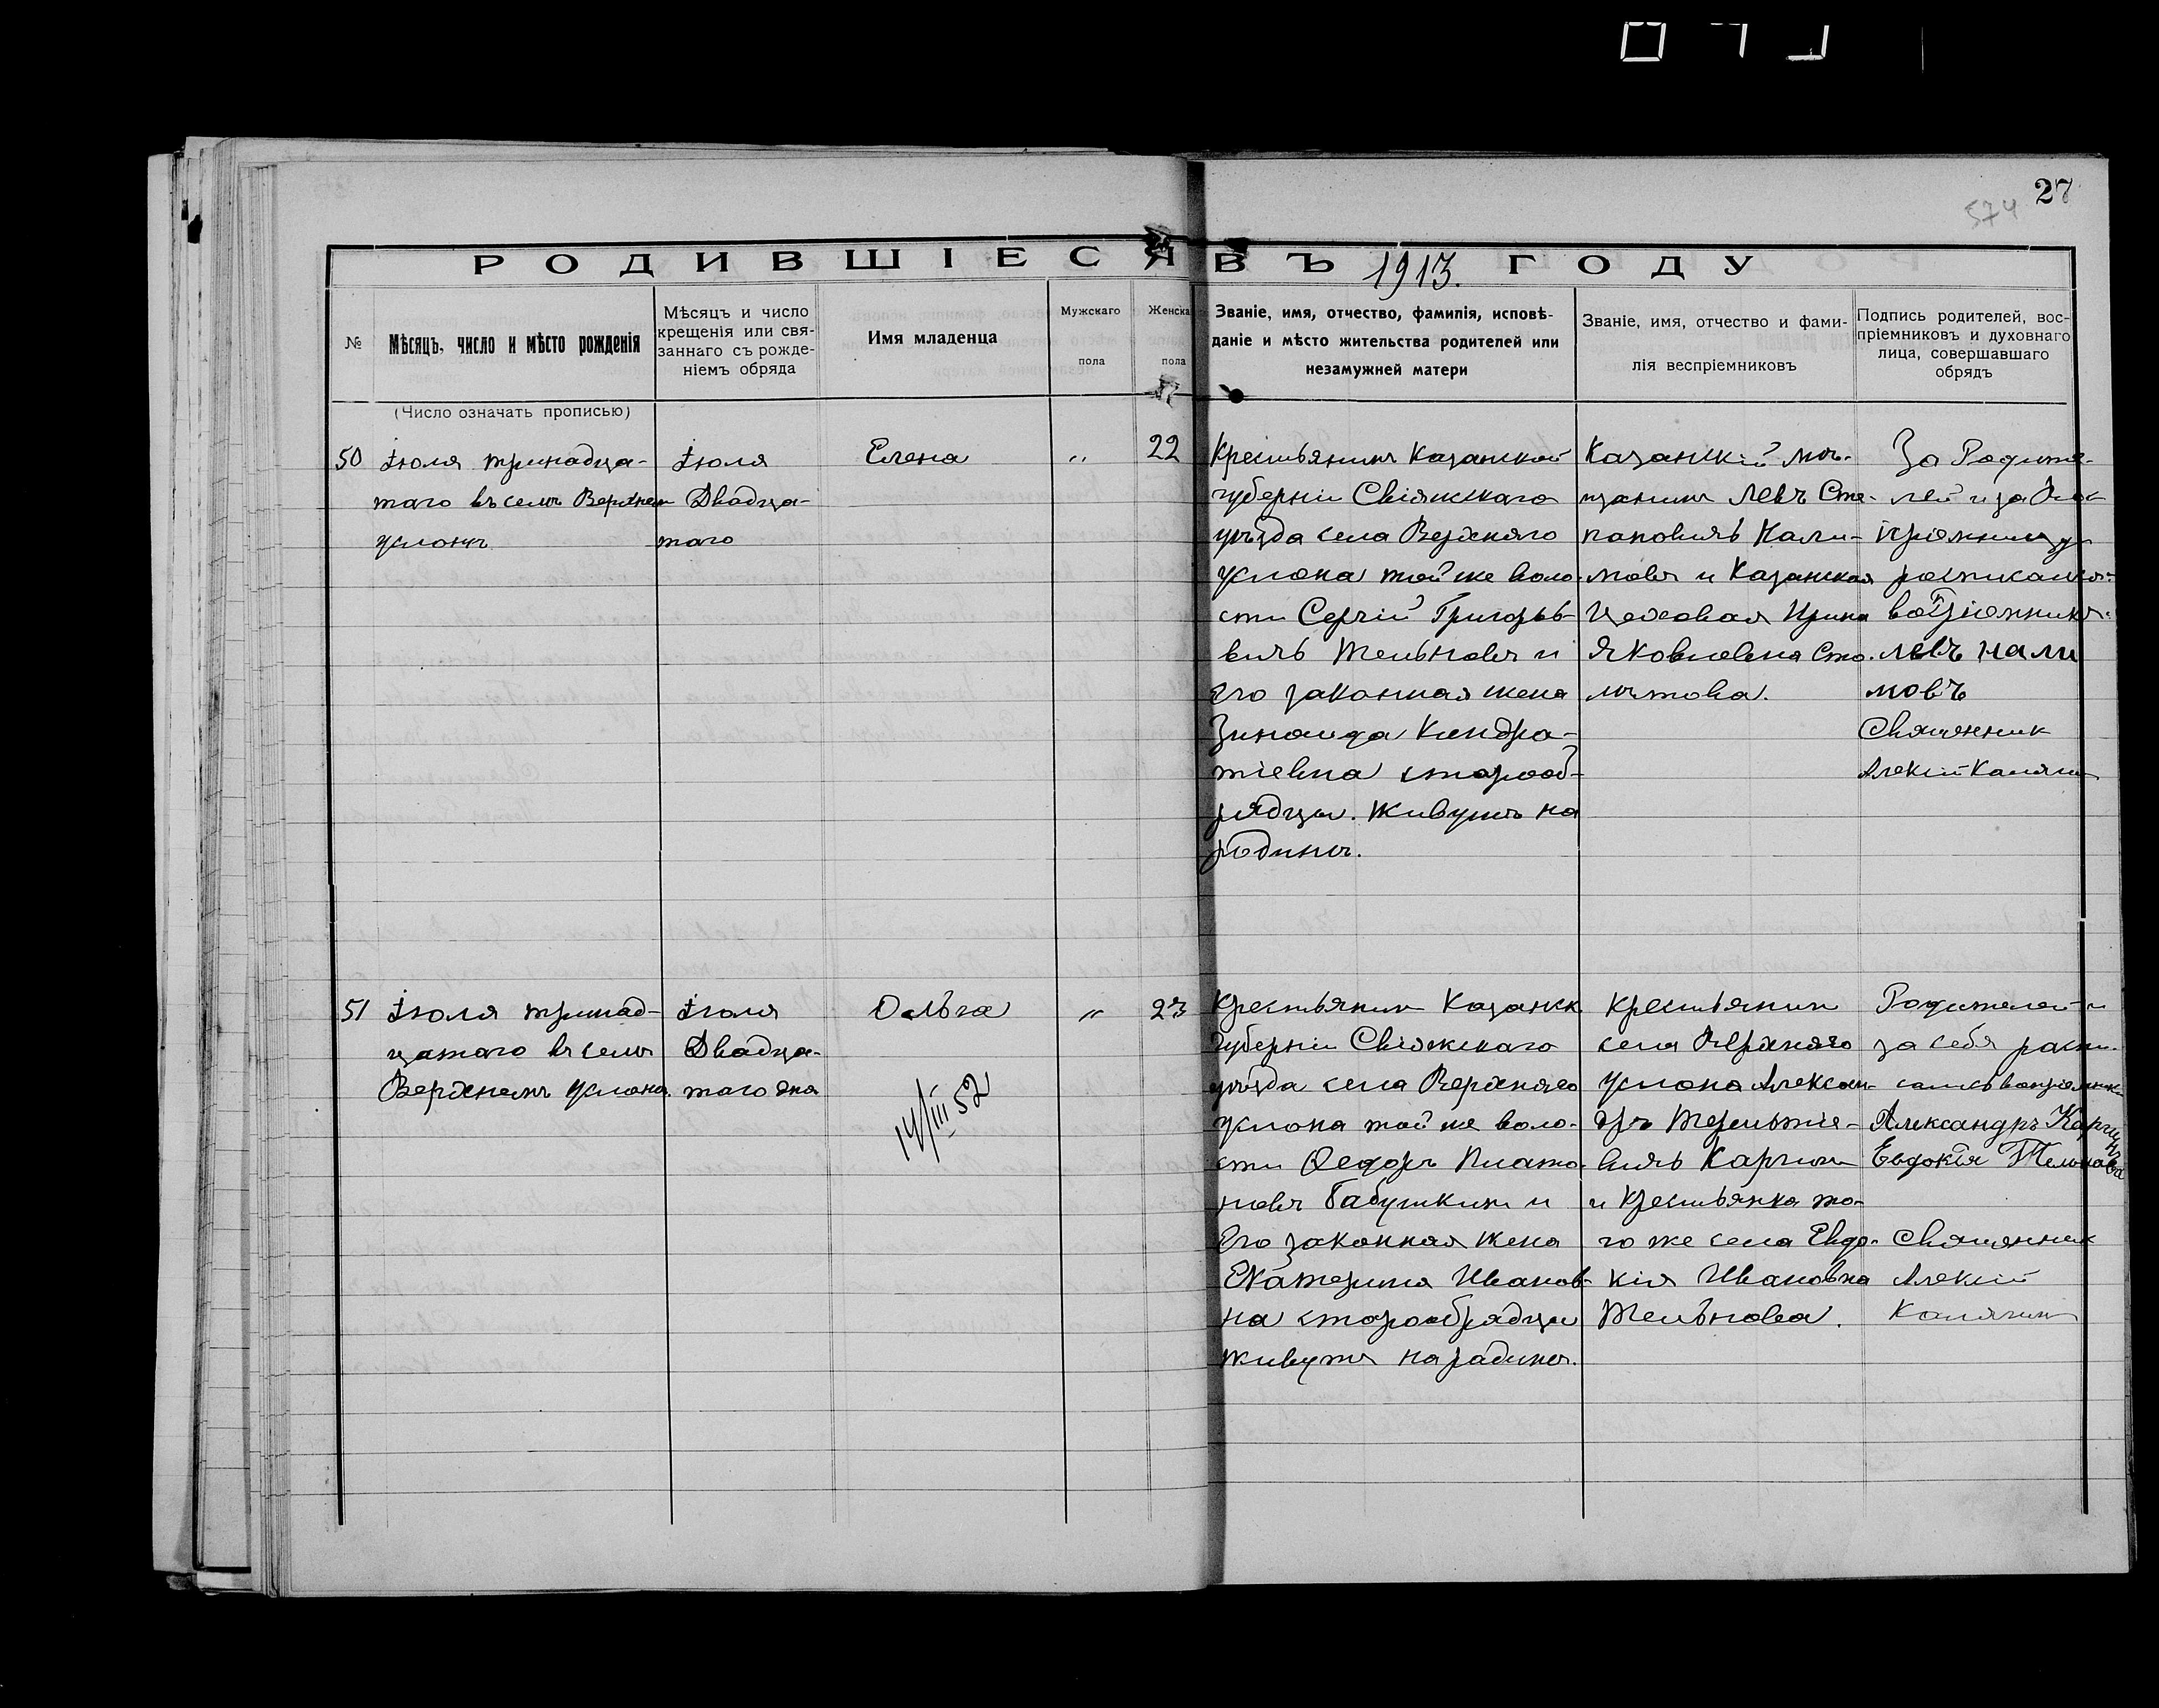 574 27
РОДИВШІЕСЯ ВЪ 1913. ГОДУ
№
Мѣсяцъ, число и мѣсто рожденія
Мѣсяцъ и число
крещенія или свя-
заннаго съ рожде-
ніемъ обряда
Имя младенца
Мужскаго
пола
Женска
пола
Званіе, имя, отчество, фамилія, исповѣ-
даніе и мѣсто жительства родителей или
незамужней матери
Званіе, имя, отчество и фами-
лія веспріемниковъ
Подпись родителей, вос-
пріемниковъ и духовнаго
лица, совершавшаго
обрядъ
(Число означать прописью)
50
Іюля тринадца-
таго въ селѣ Верхнем
Услонѣ
Іюля
Двадца-
таго
Елена
"
22
Крестьянинъ Казанской
губерніи Свіяжскаго
уѣзда села Верхняго
Услона той же воло-
сти Сергій Григорьев-
вичъ Тельновъ и
Его законная жена
Зинаида Киндра-
тіевна старооб-
рядцы. Живутъ на
родинѣ.
Казанскій мѣ-
щанинъ Левъ Сте-
пановичъ Кали-
мовъ и Казанская
Цеховая Ирина
Яковлевна Сто-
лѣтова.
За Родите-
лей и за
росписался
Левъ Кали
мовъ
Священник
Алексій Калягин
51
Іюля тринад-
цатаго въ селѣ
Верхнемъ Услонѣ.
Іюля
Двадца-
таго дня
Ольга
14/III 52
"
23
Крестьянин Казанск.
Губерніи Свіяжскаго
уѣзда села Верхняго
Услона той же воло-
сти Ѳедоръ Плато-
новъ Бабушкинъ и
Его законная жена
Екатерина Иванов-
на старообрядцы
живутъ на радинѣ.
Крестьянин
села Верхняго
Услона Алексан-
дръ Терентіе-
вичъ Каргин
и Крестьянка то-
го же села Евдо-
кія Ивановна
Тельнова.
Родителей и
за себя распи-
сались воспріемник
Александръ Каргинъ
Евдокія Тельнова
Священник
Алексій
Калягин